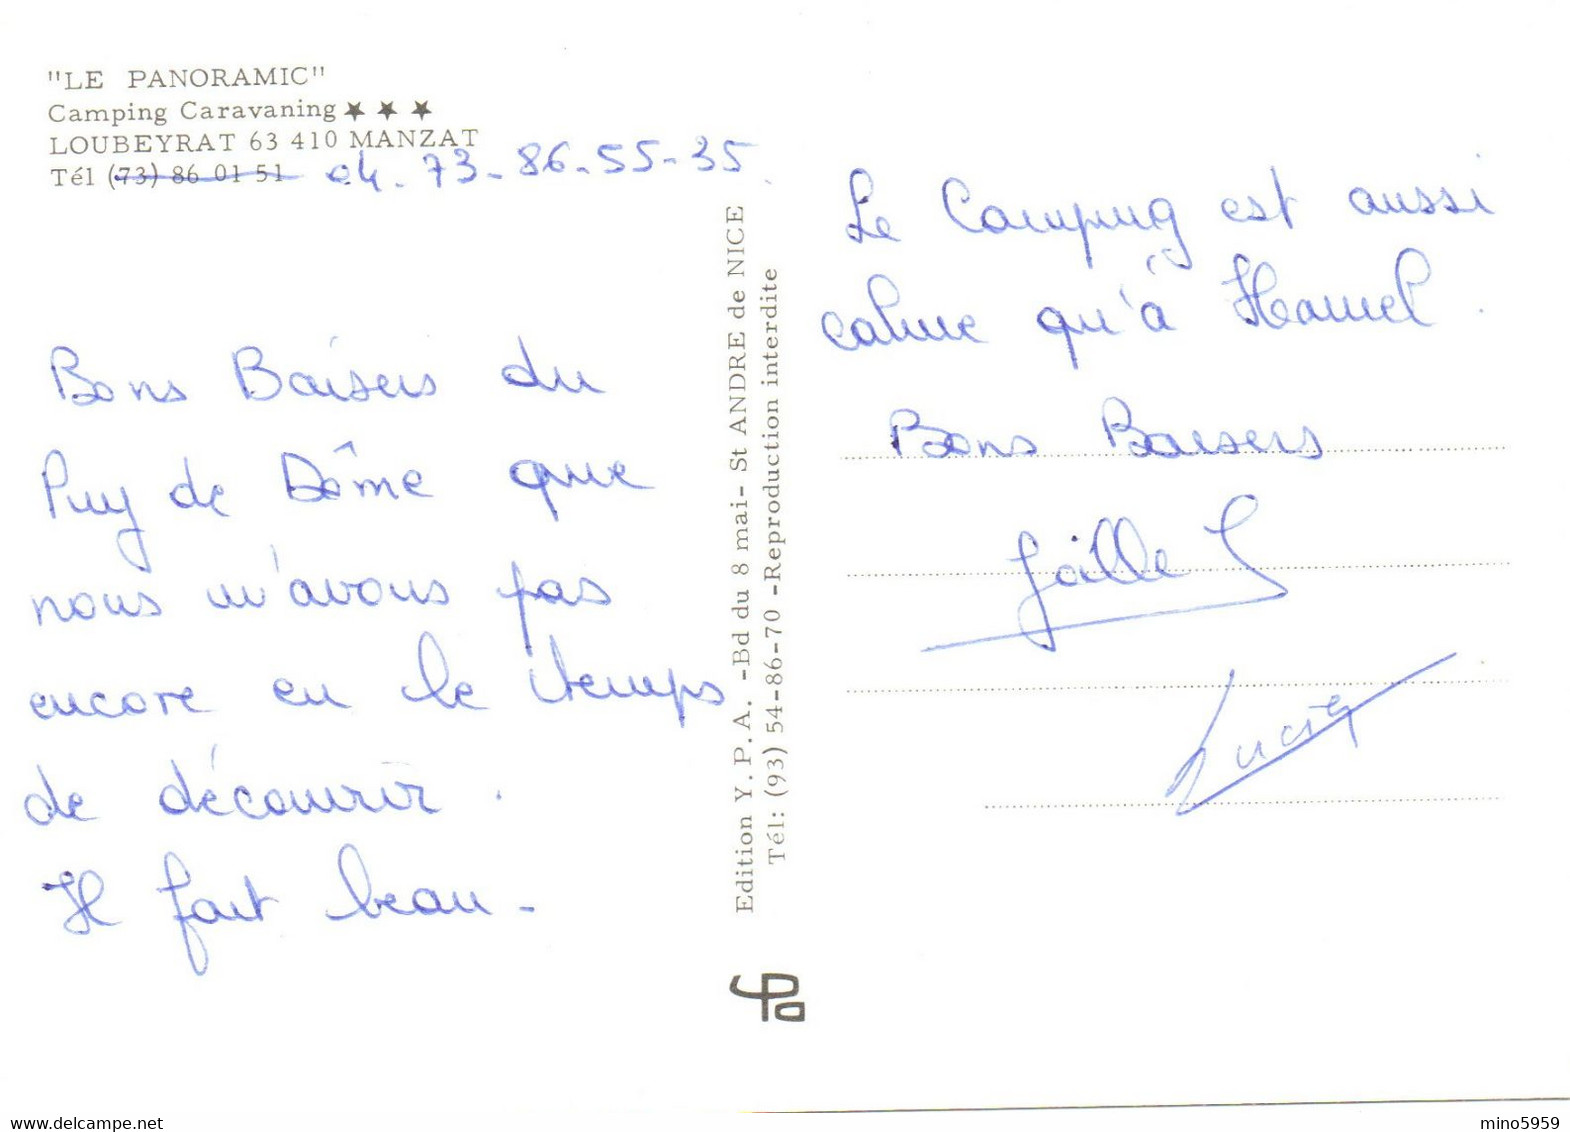 "LE PANORAMIC"
Camping Caravaning ★ ★ ★
LOUBEYRAT 63 410 MANZAT
Tél (73) 86 01 51 04-73-86-55-35
Bons Baisers du
Puy de Dôme que
nous n'avons pas
encore eu le temps
de découvrir.
Il fait beau-
Edition Y.P.A. -Bd du 8 mai- St ANDRE de NICE
Tél: (93) 54-86-70 -Reproduction interdite
Le Camping est aussi
calme qu'à Hamel.
Bons Baisers
Joëlle
Lucien
YPa
mino5959